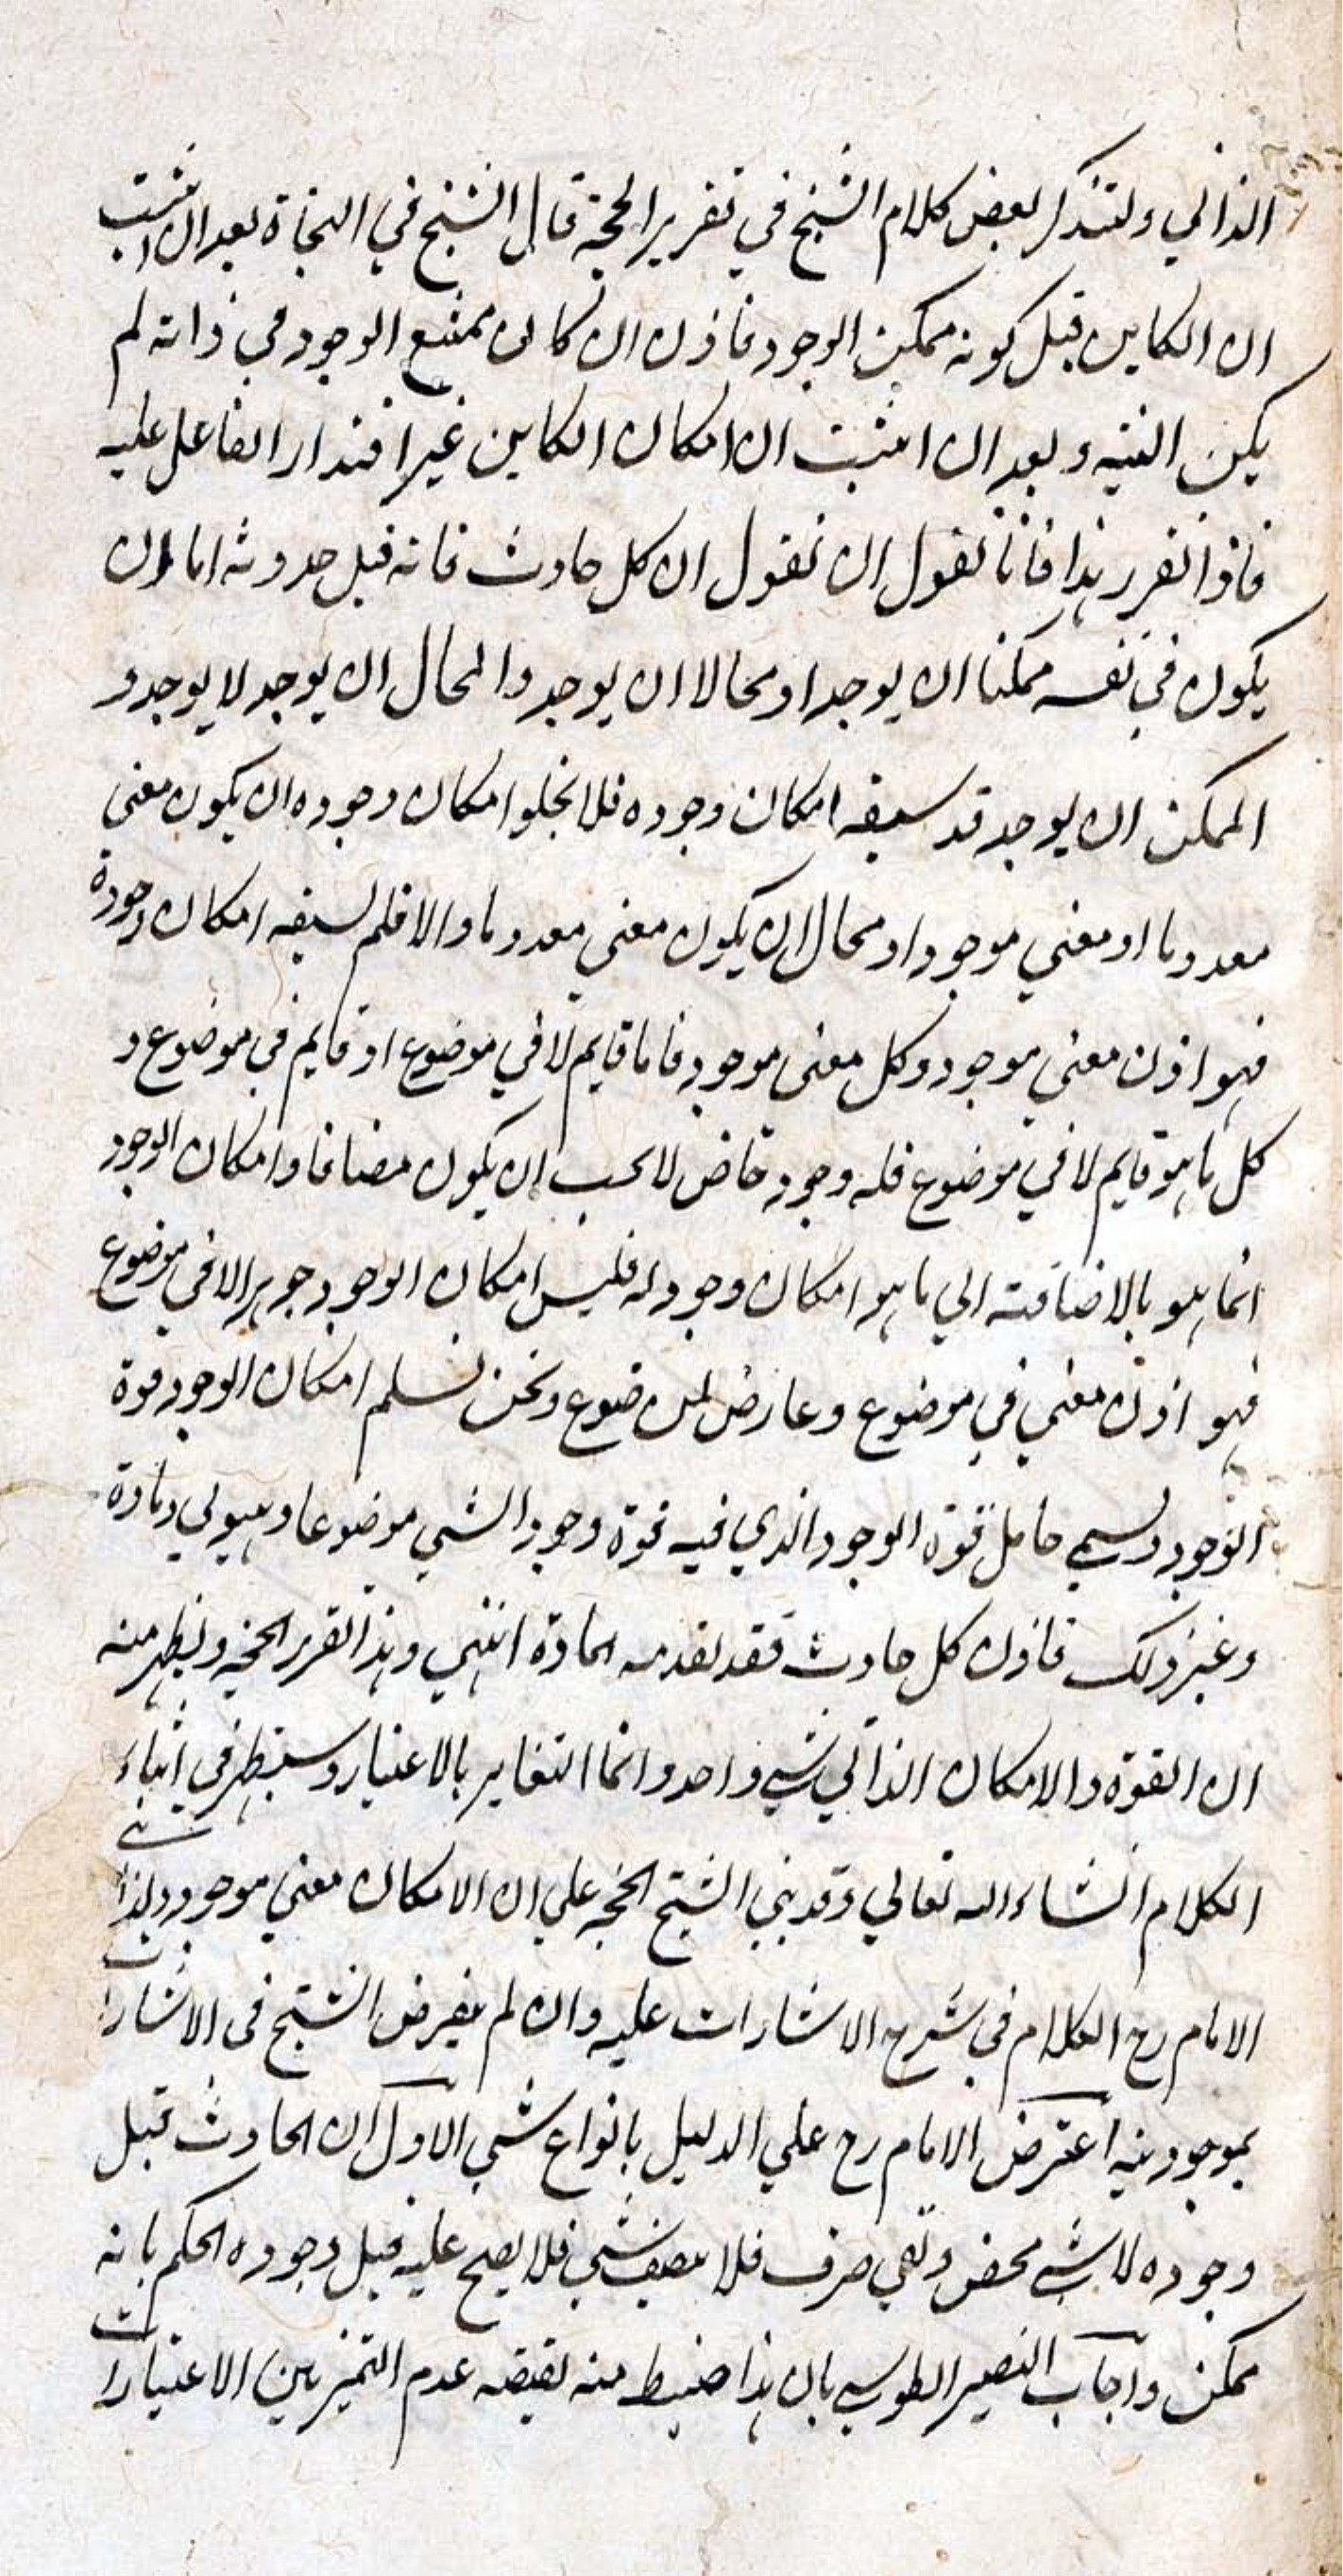 الذاتي ولنذكر بعض كلام الشيخ في تقرير الحجة قال الشيخ في النجاة بعد ان اثبت
ان الكاين قبل كونه ممكن الوجود فاذن ان كان ممتنع الوجود في ذاته لم
يكن البتيه وبعد ان اثبت ان امكان الكاين غير اقتدار الفاعل عليه
فاذا تقرر هذا فانا نقول ان نقول ان كل حادث فانه قبل حدوثه اما ان
يكون في نفسه ممكنا ان يوجد او محالا ان يوجد والمحال ان يوجد لا يوجد و
الممكن ان يوجد قد سبقه امكان وجوده فلا يخلوا امكان وجوده ان يكون معني
معدوما او معني موجودا ومحال ان يكون معني معدوما والا فلم يسبقه امكان وجوده
فهو اذن معني موجود وكل معني موجود فاما قايم لا في موضوع او قايم في موضوع و
كل ما هو قايم لا في موضوع فله وجود خاص لا يجب ان يكون مضافا وامكان الوجود
انما هو بالاضافته الي ما هو امكان وجود له فليس امكان الوجود جوهرا لا في موضوع
فهو اذن معني في موضوع وعارض لموضوع ونحن نسلم امكان الوجود قوة
الوجود ويسمي حامل قوة الوجود الذي فيه قوة وجود الشي موضوعا وهيولي ومادة
وغير ذلك فاذن كل حادث فقد تقدمه المادة انتهي وهذا تقرر الحجة ويظهر منه
ان القوة والامكان الذاتي شي واحد وانما التغاير بالاعتبار وسيظهر في اثناء
الكلام انشاء الله تعالي وقد بني الشيخ الحجة علي ان الامكان معني موجود ولذا
الامام رح الكلام في شرح الاشارات عليه وان لم يفرض الشيخ في الاشارات
بموجوديته اعترض الامام رح علي الدليل بانواع شي الاول ان الحادث قبل
وجوده لا شي محض ونفي صرف فلا يتصف بشي فلا يصح عليه قبل وجوده الحكم بانه
ممكن واجاب النصير الطوسي بان هذا ضبط منه يقتضه عدم التميز بين الاعتبارات